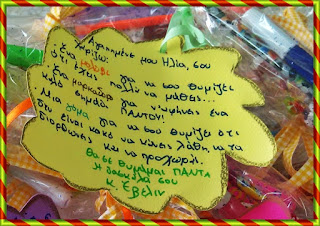 Αγαπημένε μου Ηλία, σου
χαρίζω:
· Ένα μολύβι για να σου θυμίζει
ότι έχεις πολλά να μάθεις...
· Ένα μαρκαδόρο για ν'αφήνεις ένα
καλό σημάδι ΠΑΝΤΟΥ!
· Μια γόμα για να σου θυμίζει ότι
δεν είναι κακό να κάνεις λάθη, να τα
διορθώνεις και να προχωράς.
Θα σε θυμάμαι ΠΑΝΤΑ
Η δασκάλα σου
κ. Έβελιν